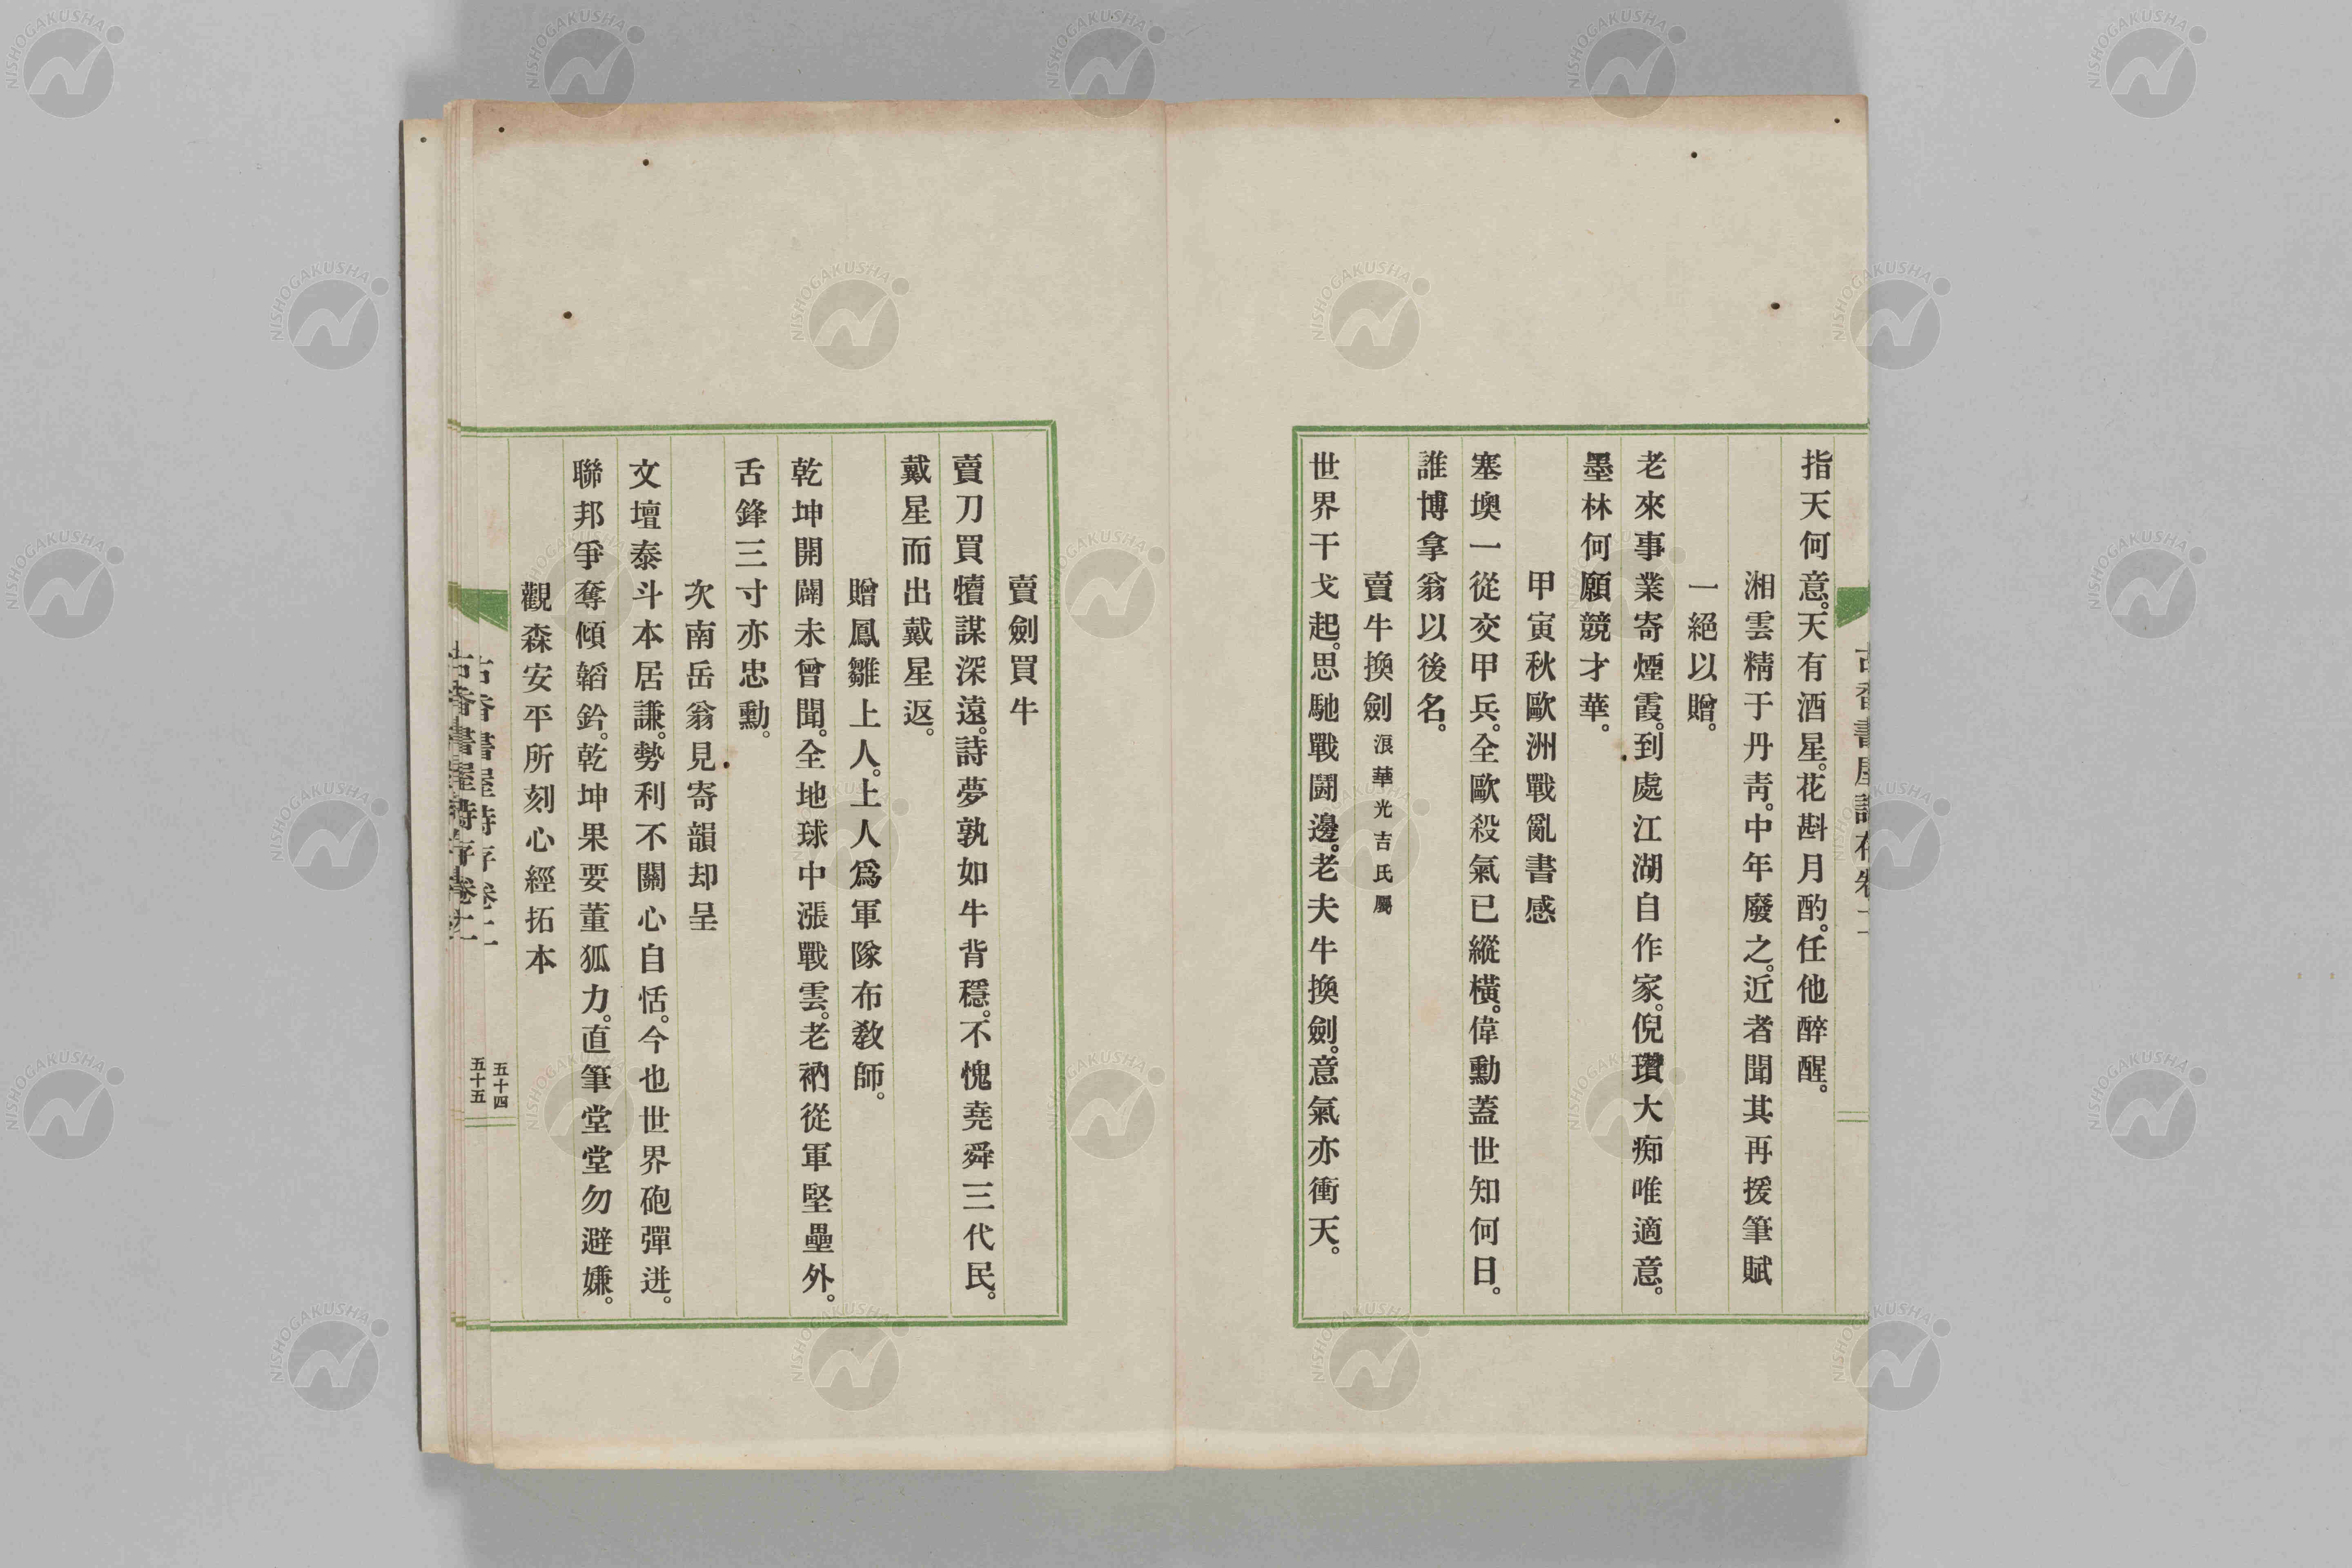 指天何意。天有酒星。花斟月酌。任他醉醒。
湘雲精于丹靑。中年廢之。近者聞其再援筆賦
一絕以贈。
老來事業寄煙霞。到處江湖自作家。倪瓚大痴唯適意。
墨林何願競才華。
甲寅秋歐洲戰亂書感
塞墺一從交甲兵。全歐殺氣已縱橫。偉勳蓋世知何日。
誰博拿翁以後名。
賣牛換劍 浪華光吉氏屬
世界干戈起。思馳戰鬪邊。老夫牛換劍。意氣亦衝天。
賣劍買牛
賣刀買犢謀深遠。詩夢孰如牛背穩。不愧堯舜三代民。
戴星而出戴星返。
贈鳳雛上人。上人爲軍隊布敎師。
乾坤開闢未曾聞。全地球中漲戰雲。老衲從軍堅壘外。
舌鋒三寸亦忠勳。
次南岳翁見寄韻却呈
文壇泰斗本居謙。勢利不關心自恬。今也世界砲彈迸。
聯邦爭奪傾韜鈐。乾坤果要董狐力。直筆堂堂勿避嫌。
觀森安平所刻心經拓本
古香書屋詩存卷二
五十四
古香書屋詩存卷二
五十五
NISHOGAKUSHA